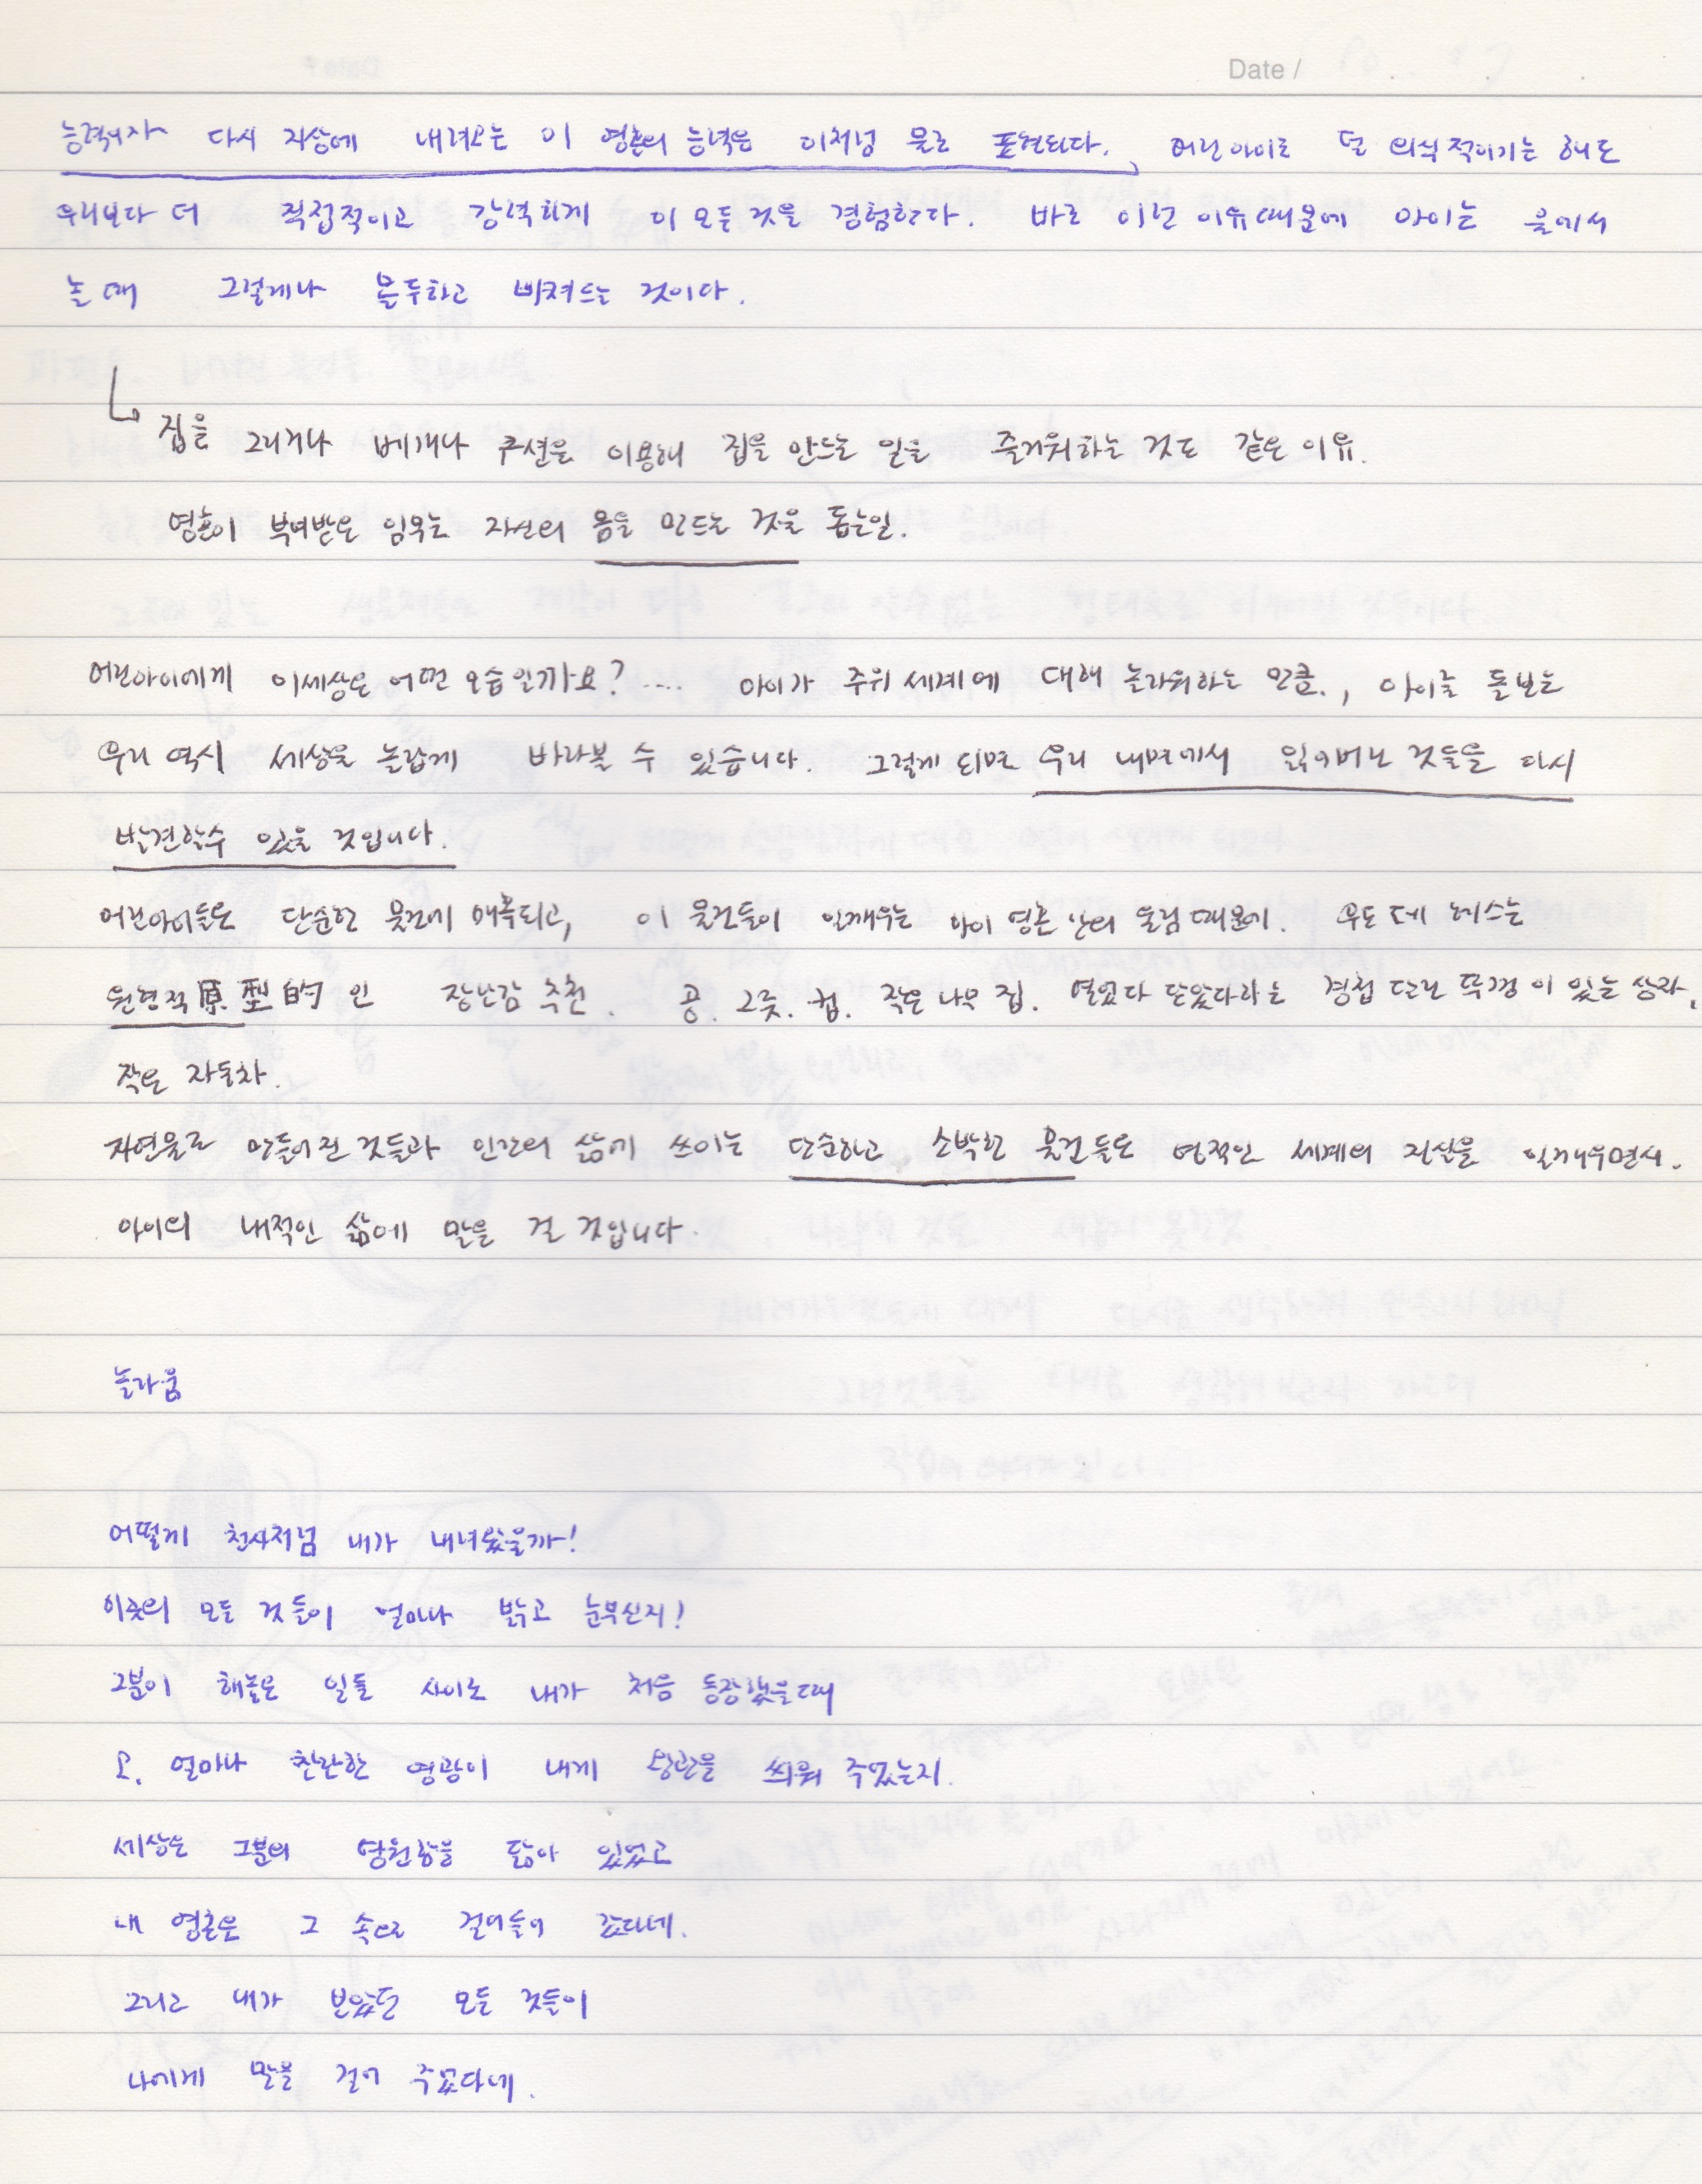 Date /
능력이자 다시 지상에 내려오는 이 영혼의 능력은 이처럼 물로 표현되다. 어린 아이로 덜 의식적이기는 해도
우리보다 더 직접적이고 강력하게 이 모든 것을 경험한다. 바로 이런 이유 때문에 아이는 물에서
놀 때 그렇게나 몰두하고 빠져드는 것이다.
집을 그리거나 베개나 쿠션을 이용해 집을 만드는 일을 즐거워하는 것도 같은 이유.
영혼이 부여받은 임무는 자신의 몸을 만드는 것을 돕는일.
어린아이에게 이세상은 어떤 모습일까요? .... 아이가 주위 세계에 대해 놀라워하는 만큼, 아이를 돌보는
우리 역시 세상을 놀랍게 바라볼 수 있습니다. 그렇게 되면 우리 내면에서 잃어버린 것들을 다시
발견할수 있을 것입니다.
어린아이들은 단순한 물건에 매혹되고, 이 물건들이 일깨우는 아이 영혼 안의 울림 때문에. 우도 데 헤스는
원형적 原型的 인 장난감 추천. 공. 그릇. 컵. 작은 나무 집. 열었다 닫았다하는 경첩 달린 뚜껑이 있는 상자,
작은 자동차.
자연물로 만들어진 것들과 인간의 삶에 쓰이는 단순하고 소박한 물건들은 영적인 세계의 진실을 일깨우면서.
아이의 내적인 삶에 말을 걸 것입니다.
놀라움
어떻게 천사처럼 내가 내려왔을까!
이곳의 모든 것들이 얼마나 밝고 눈부신지!
그분이 해놓은 일들 사이로 내가 처음 등장했을때
오, 얼마나 찬란한 영광이 내게 왕관을 씌워 주었는지.
세상은 그분의 영원함을 닮아 있었고
내 영혼은 그 속으로 걸어들어 갔다네.
그리고 내가 보았던 모든 것들이
나에게 말을 걸어 주었다네.